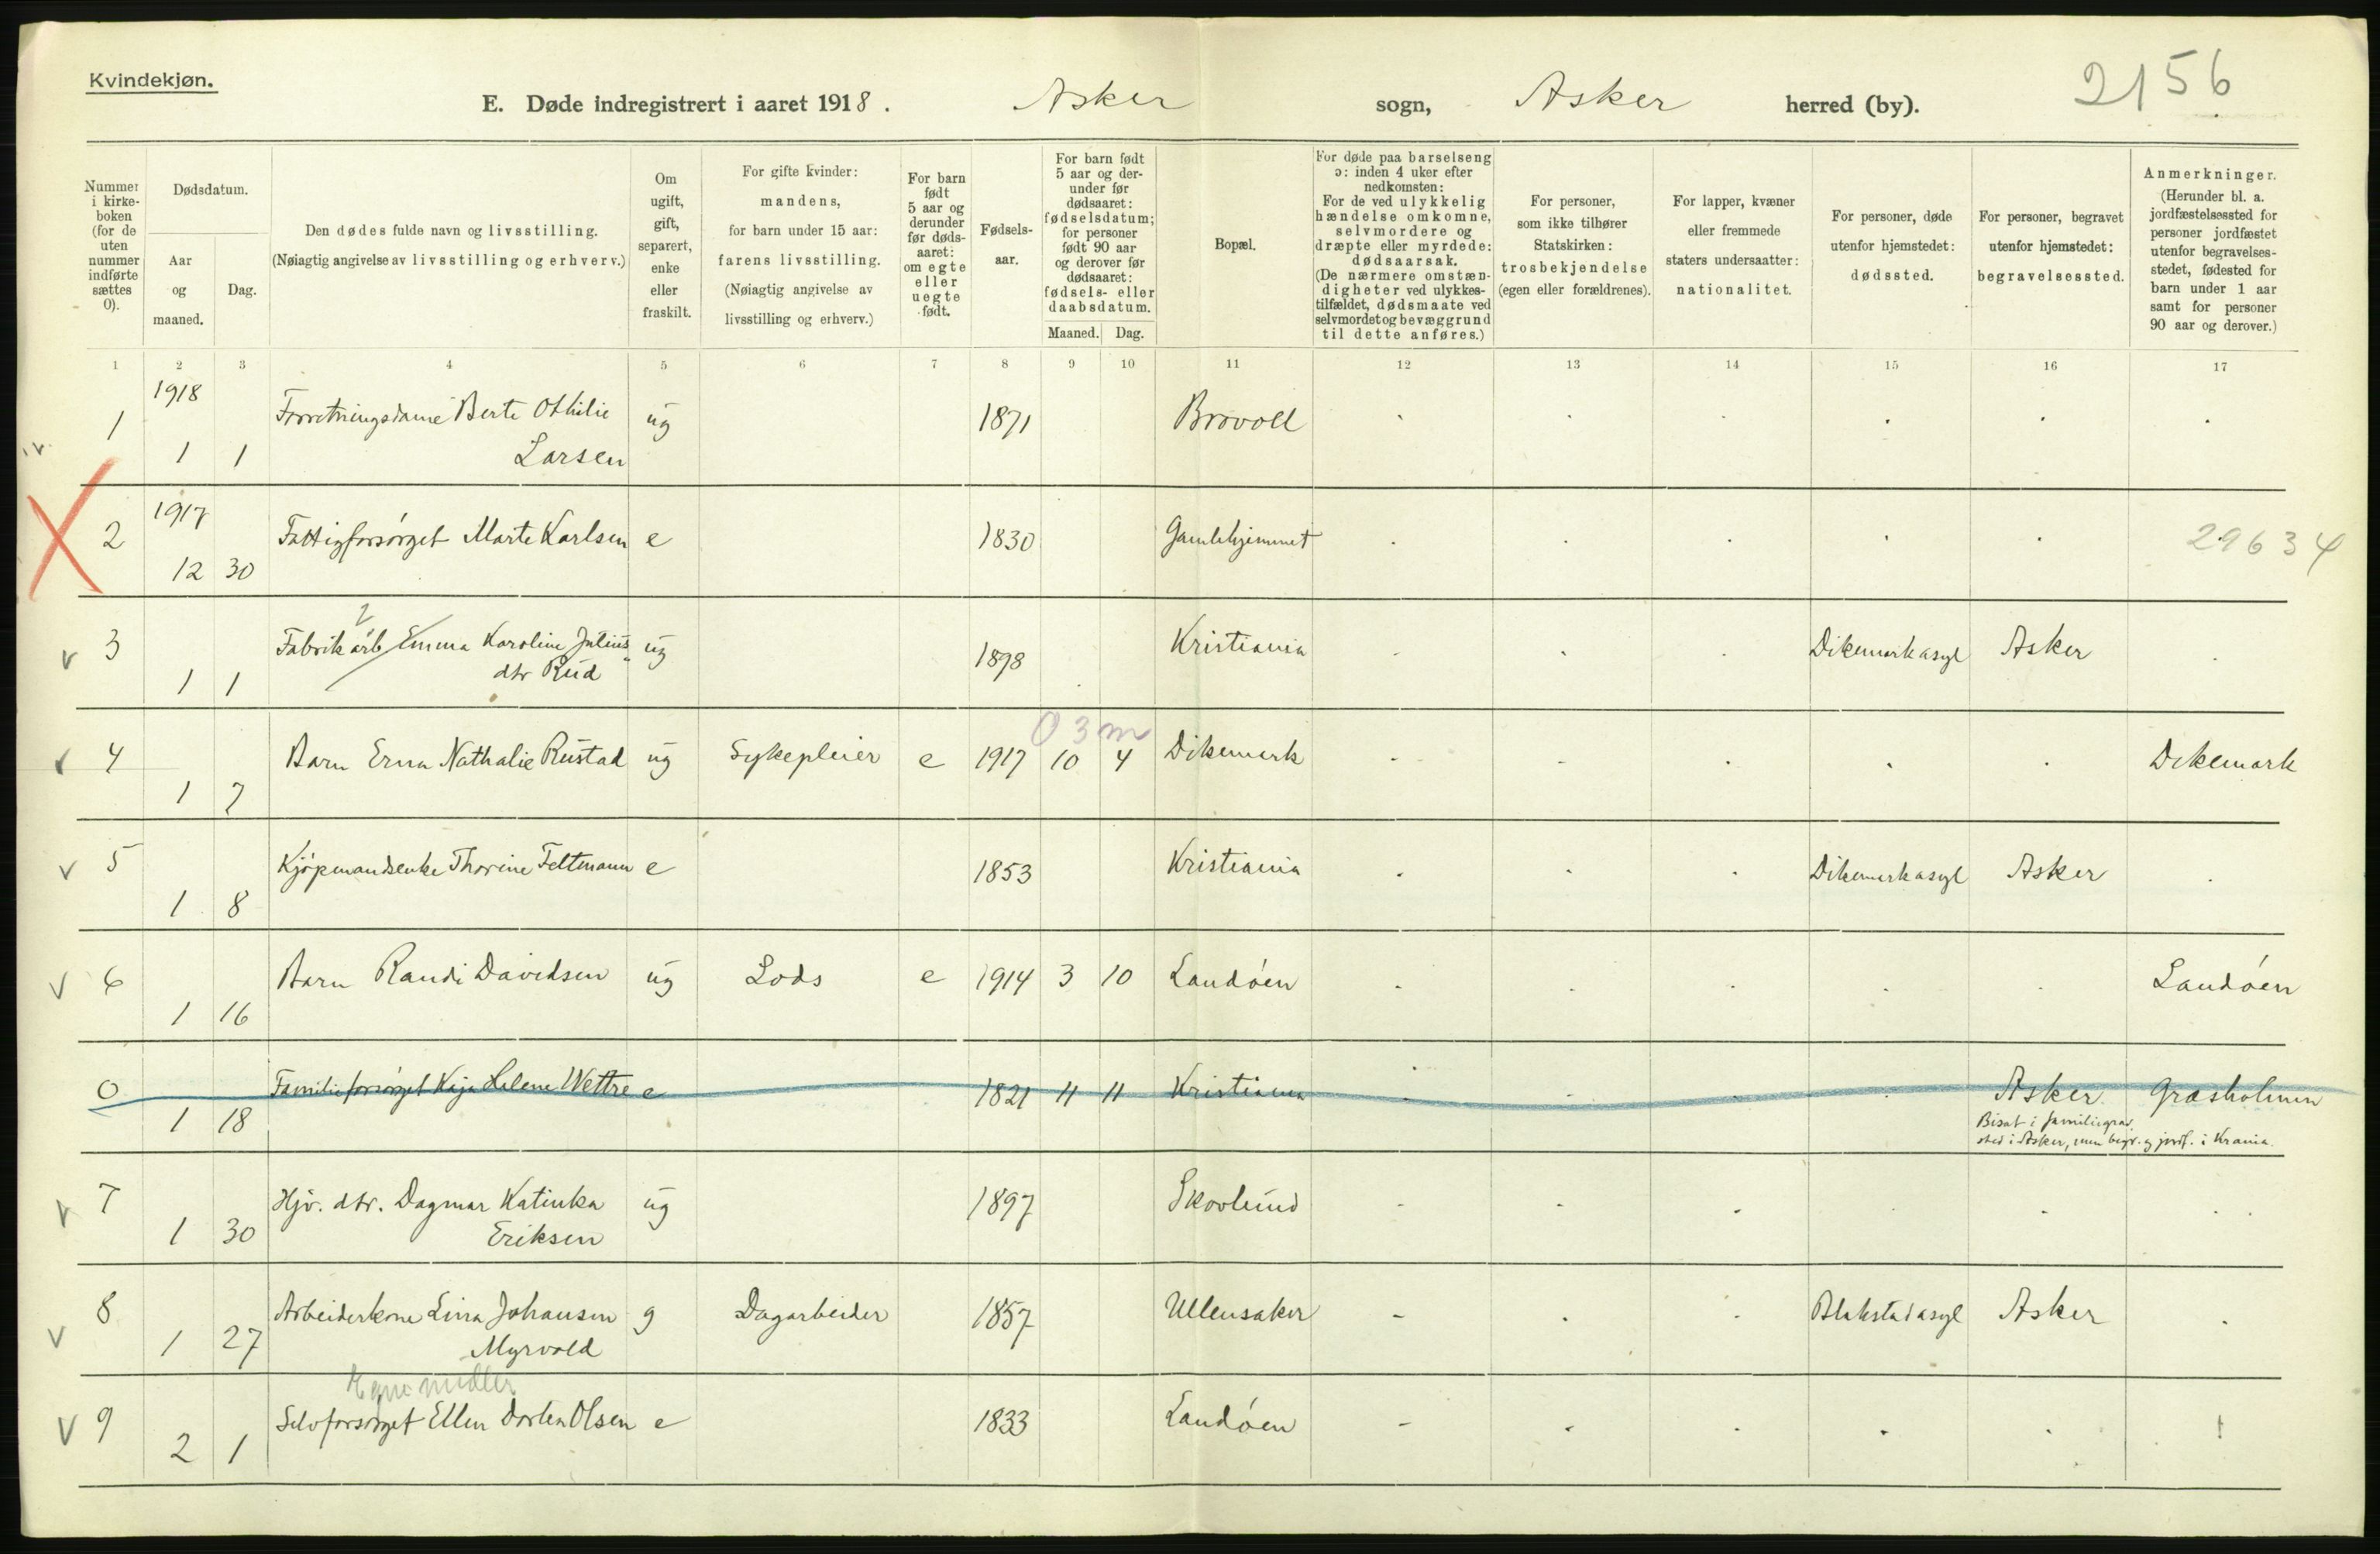 Kvindekjøn.
2156
E. Døde indregistrert i aaret 1918. Asker sogn, Asker herred (by).
Nummer i kirkeboken (for de uten nummer indførte sættes 0).
Dødsdatum.
Aar og maaned.
Dag.
Den dødes fulde navn og livsstilling.
(Nøiagtig angivelse av livsstilling og erhverv.)
Om ugift, gift, separert, enke eller fraskilt.
For gifte kvinder: mandens, for barn under 15 aar: farens livsstilling. (Nøiagtig angivelse av livsstilling og erhverv.)
For barn født 5 aar og derunder før dødsaaret: om egte eller uegte født.
Fødselsaar.
For barn født 5 aar og derunder før dødsaaret: fødselsdatum; for personer født 90 aar og derover før dødsaaret: fødsels- eller daabsdatum.
Maaned. Dag.
Bopæl.
For døde paa barselseng ɔ: inden 4 uker efter nedkomsten: For de ved ulykkelig hændelse omkomne, selvmordere og dræpte eller myrdede: dødsaarsak. (De nærmere omstændigheter ved ulykkestilfældet, dødsmaate ved selvmordet og bevæggrund til dette anføres.)
For personer, som ikke tilhører Statskirken: trosbekjendelse (egen eller forældrenes).
For lapper, kvæner eller fremmede staters undersaatter: nationalitet.
For personer, døde utenfor hjemstedet: dødssted.
For personer, begravet utenfor hjemstedet: begravelsessted.
Anmerkninger. (Herunder bl. a. jordfæstelsessted for personer jordfæstet utenfor begravelsesstedet, fødested for barn under 1 aar samt for personer 90 aar og derover.)
1 2 3 4 5 6 7 8 9 10 11 12 13 14 15 16 17
1918
1 Forretningsdame Berte Othilie ug 1871 Brovoll
1 1 Larsen
1917
2 Fattigforsørget Marte Karlsen e 1830 Gamlehjemmet 29634
12 30
3 Fabrikarb Emma Karoline Julius ug 1898 Kristiania Dikemark asyl Asker
1 1 dtr Rud
0 3 m
4 Barn Erna Nathalie Rustad ug Sykepleier e 1917 10 4 Dikemark Dikemark
1 7
5 Kjøpmandsenke Thorine Feltmann e 1853 Kristiania Dikemark asyl Asker
1 8
6 Barn Randi Davidsen ug Lods e 1914 3 10 Landøen Landøen
1 16
0 Familieforsørget Kaja Helene Wettre e 1821 11 11 Kristiania Asker Græsholmen
1 18 Bisat i familiegrav.
sted i Asker, men begr. og jordf. i Krania.
7 Hjv. dtr. Dagmar Katinka ug 1897 Skovlund
1 30 Eriksen
8 Arbeiderkone Lina Johansen g Dagarbeider 1857 Ullensaker Blakstad asyl Asker
1 27 Myrvold
Egne midler
9 Selvforsørget Ellen Dorthea Olsen e 1833 Landøen
2 1